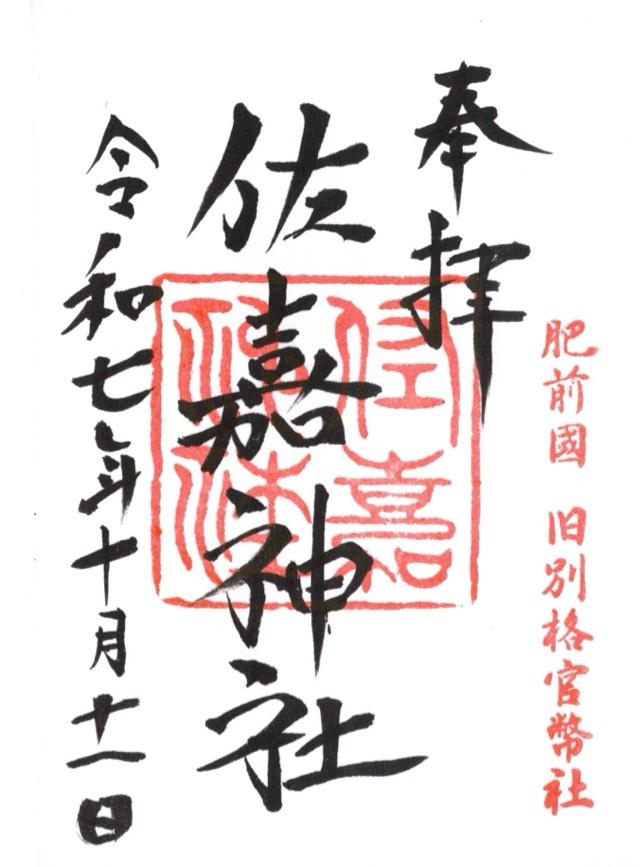 肥前國 旧別格官幣社
奉拝
佐嘉神社
令和七年十月十一日